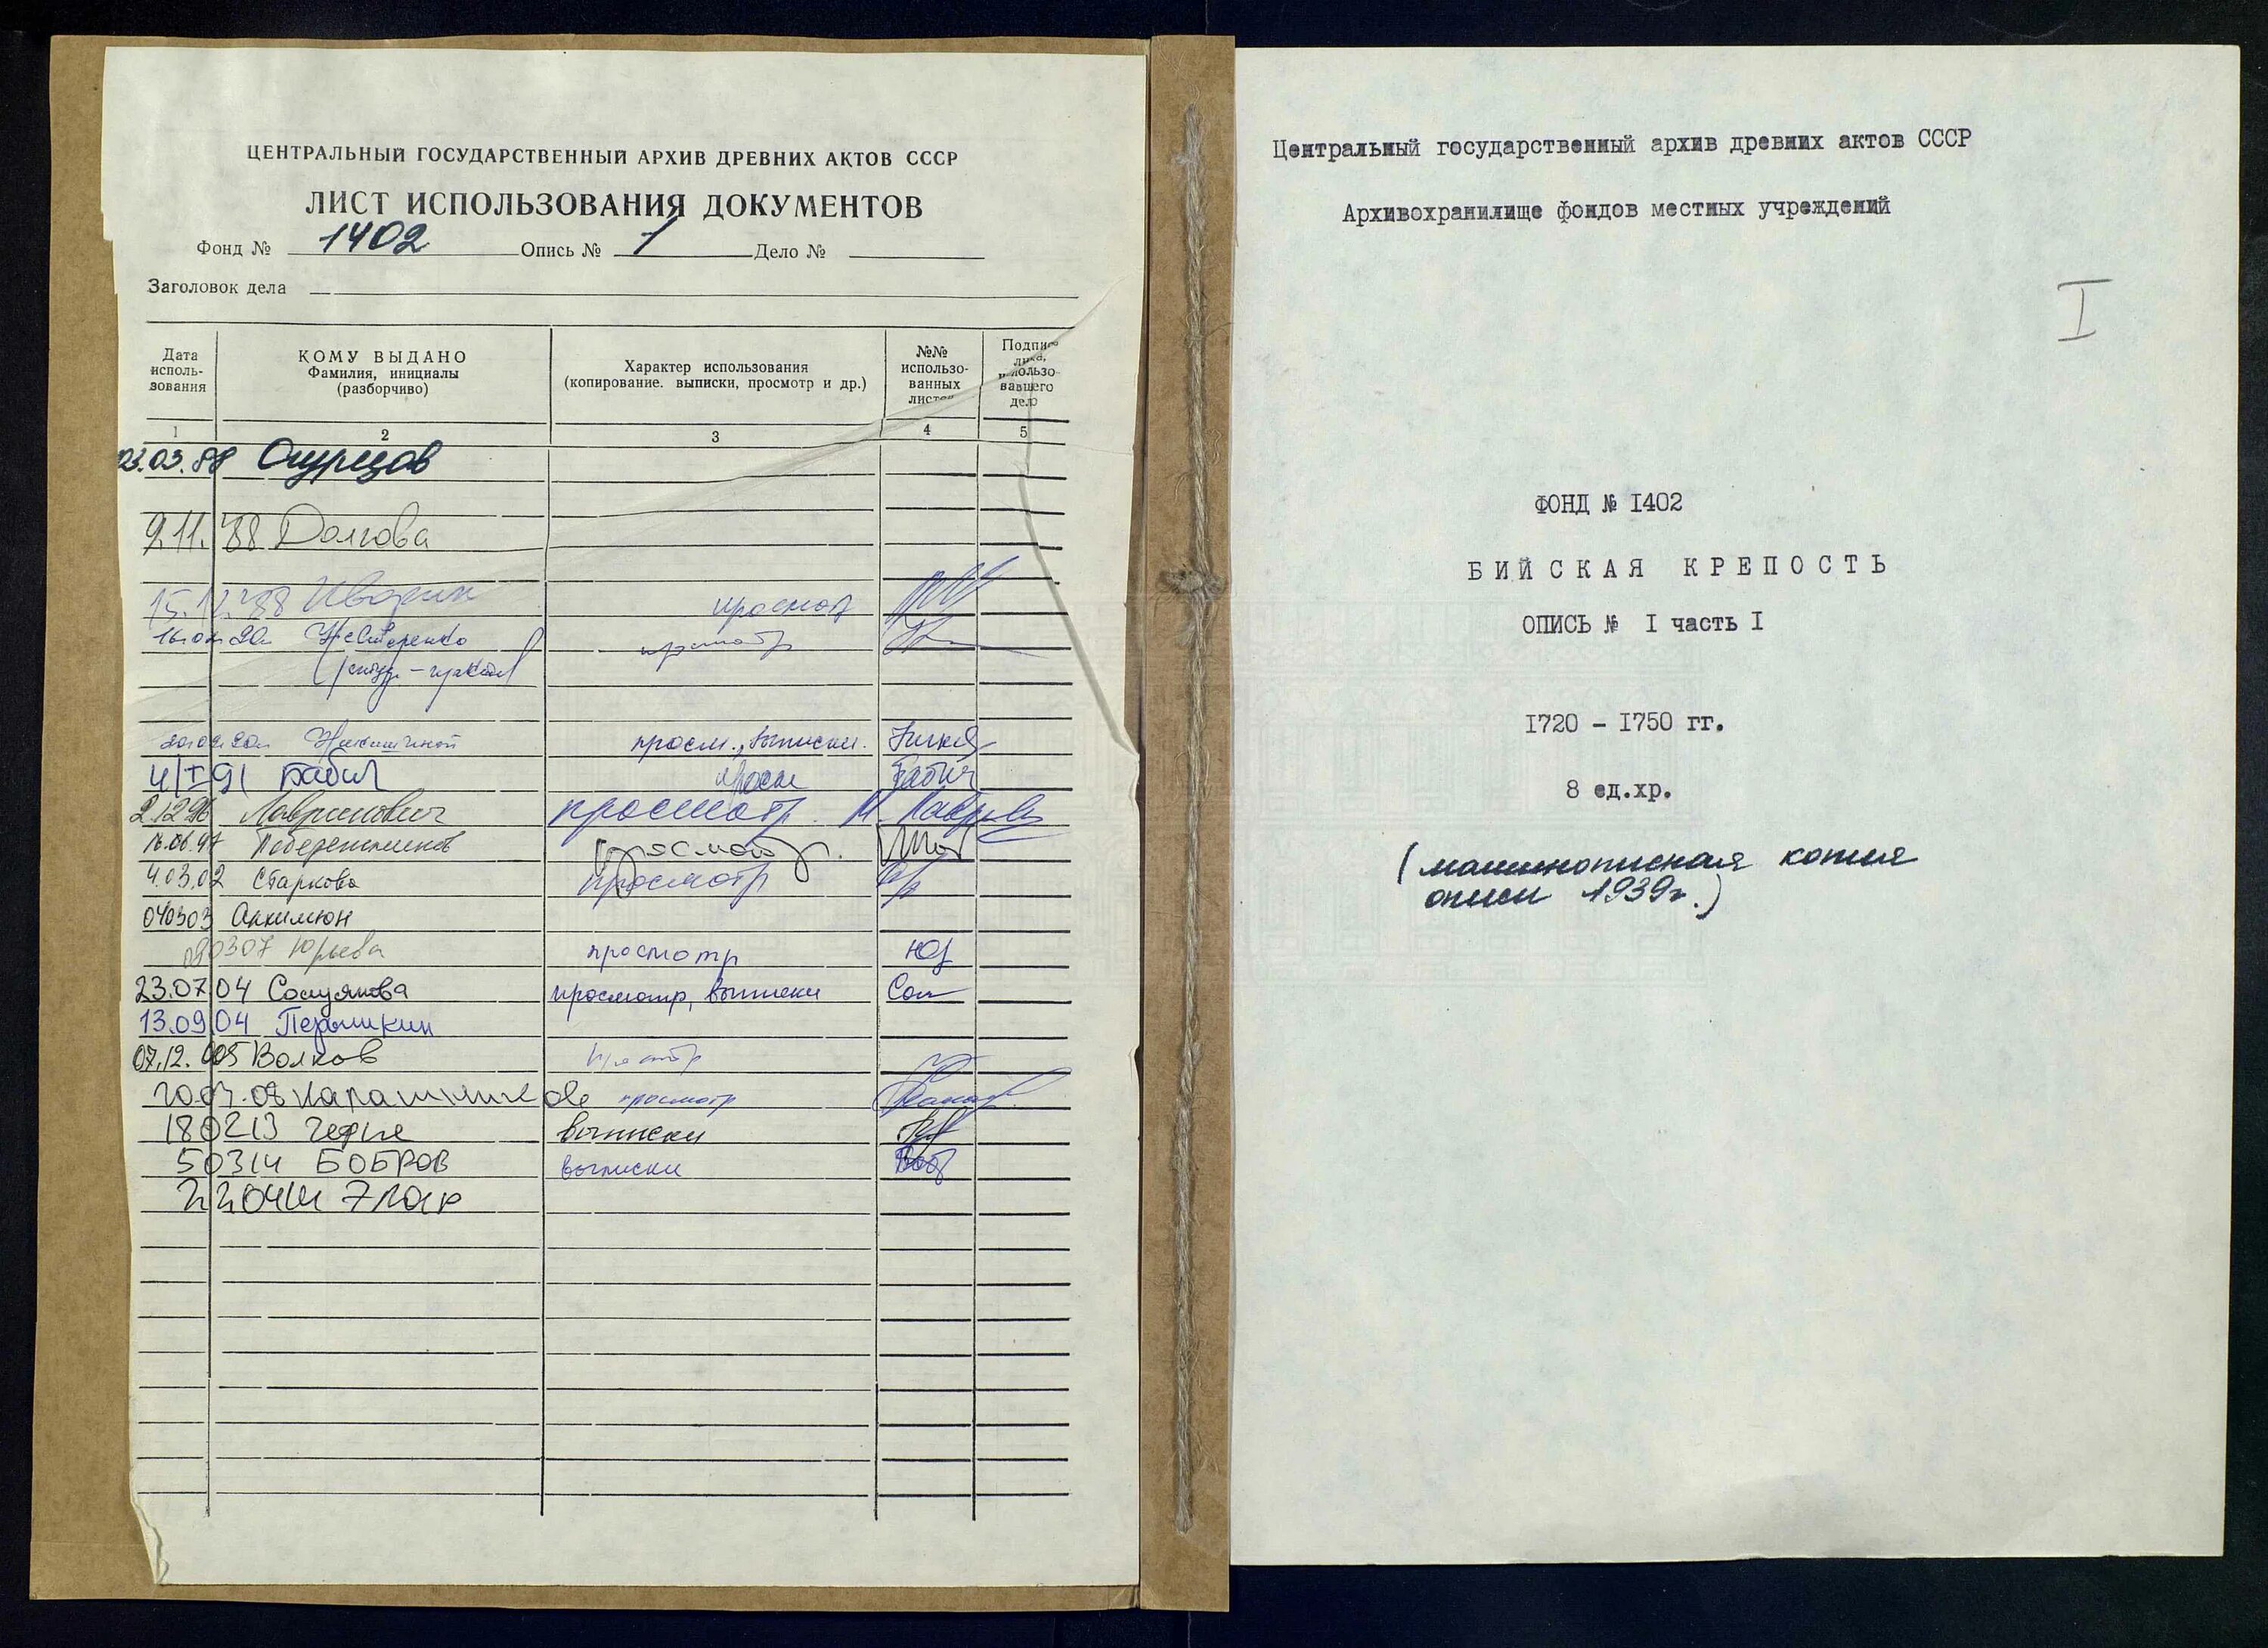 ЦЕНТРАЛЬНЫЙ ГОСУДАРСТВЕННЫЙ АРХИВ ДРЕВНИХ АКТОВ СССР
ЛИСТ ИСПОЛЬЗОВАНИЯ ДОКУМЕНТОВ
Фонд № 1402 Опись № 1 Дело №
Заголовок дела
Дата исполь-зования
КОМУ ВЫДАНО
Фамилия, инициалы
(разборчиво)
Характер использования
(копирование. выписки, просмотр и др.)
№№
использо-
ванных
листов
Подпись
лица,
использо
вавшего
дело
1 2 3 4 5
03.03.88 Огурцов
9.11.88 Долгова
15.12.88 просмотр
Нестеренко просмотр
просм., выписки.
4/I 91 Бабич просм Бабич
2.12.96 Лавринович просмотр.
16.06.97 Побережников просмотр.
4.03.02 Старкова просмотр
040303
090307 Юрьева просмотр
23.07.04 просмотр, выписки
13.09.04 Перышкин
07.12.005 Волков
просмотр
180213 выписки
50314 БОБРОВ выписки
Центральный государственный архив древних актов СССР
Архивохранилище фондов местных учреждений
I
ФОНД № I402
БИЙСКАЯ КРЕПОСТЬ
ОПИСЬ № I часть I
I720 - I750 гг.
8 ед.хр.
(машинописная копия
описи 1939г.)